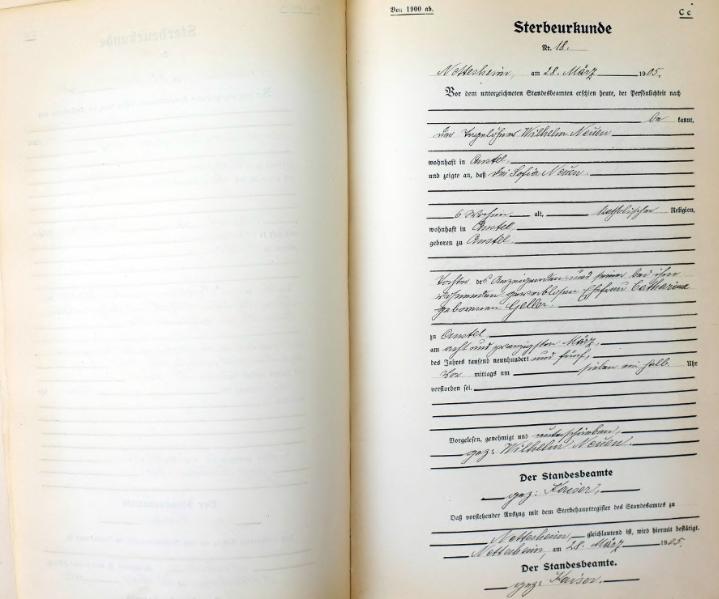 Von 1900 ab.
C c
Sterbeurkunde
Nr. 18.
Nettersheim, am 28. März 1905.
Vor dem unterzeichneten Standesbeamten erschien heute, der Persönlichkeit nach
be kannt,
der Tagelöhner Wilhelm Neuen
wohnhaft in
und zeigte an, daß die Sofia Neuen
6 Wochen alt, katholischer Religion,
wohnhaft in
geboren zu
Tochter des Anzeigenden und seiner bei ihm
wohnenden gewerblosen Ehefrau Catharina
geborenen Geller
zu
am acht und zwanzigsten März
des Jahres tausend neunhundert und fünf,
Vor mittags um sieben ein halb Uhr
verstorben sei.
Vorgelesen, genehmigt und unterschrieben,
gez: Wilhelm Neuen.
Der Standesbeamte
gez: Kaiser.
Daß vorstehender Auszug mit dem Sterbehauptregister des Standesamtes zu
Nettersheim, gleichlautend ist, wird hiermit bestätigt.
Nettersheim, am 28. März 1905.
Der Standesbeamte.
gez: Kaiser.